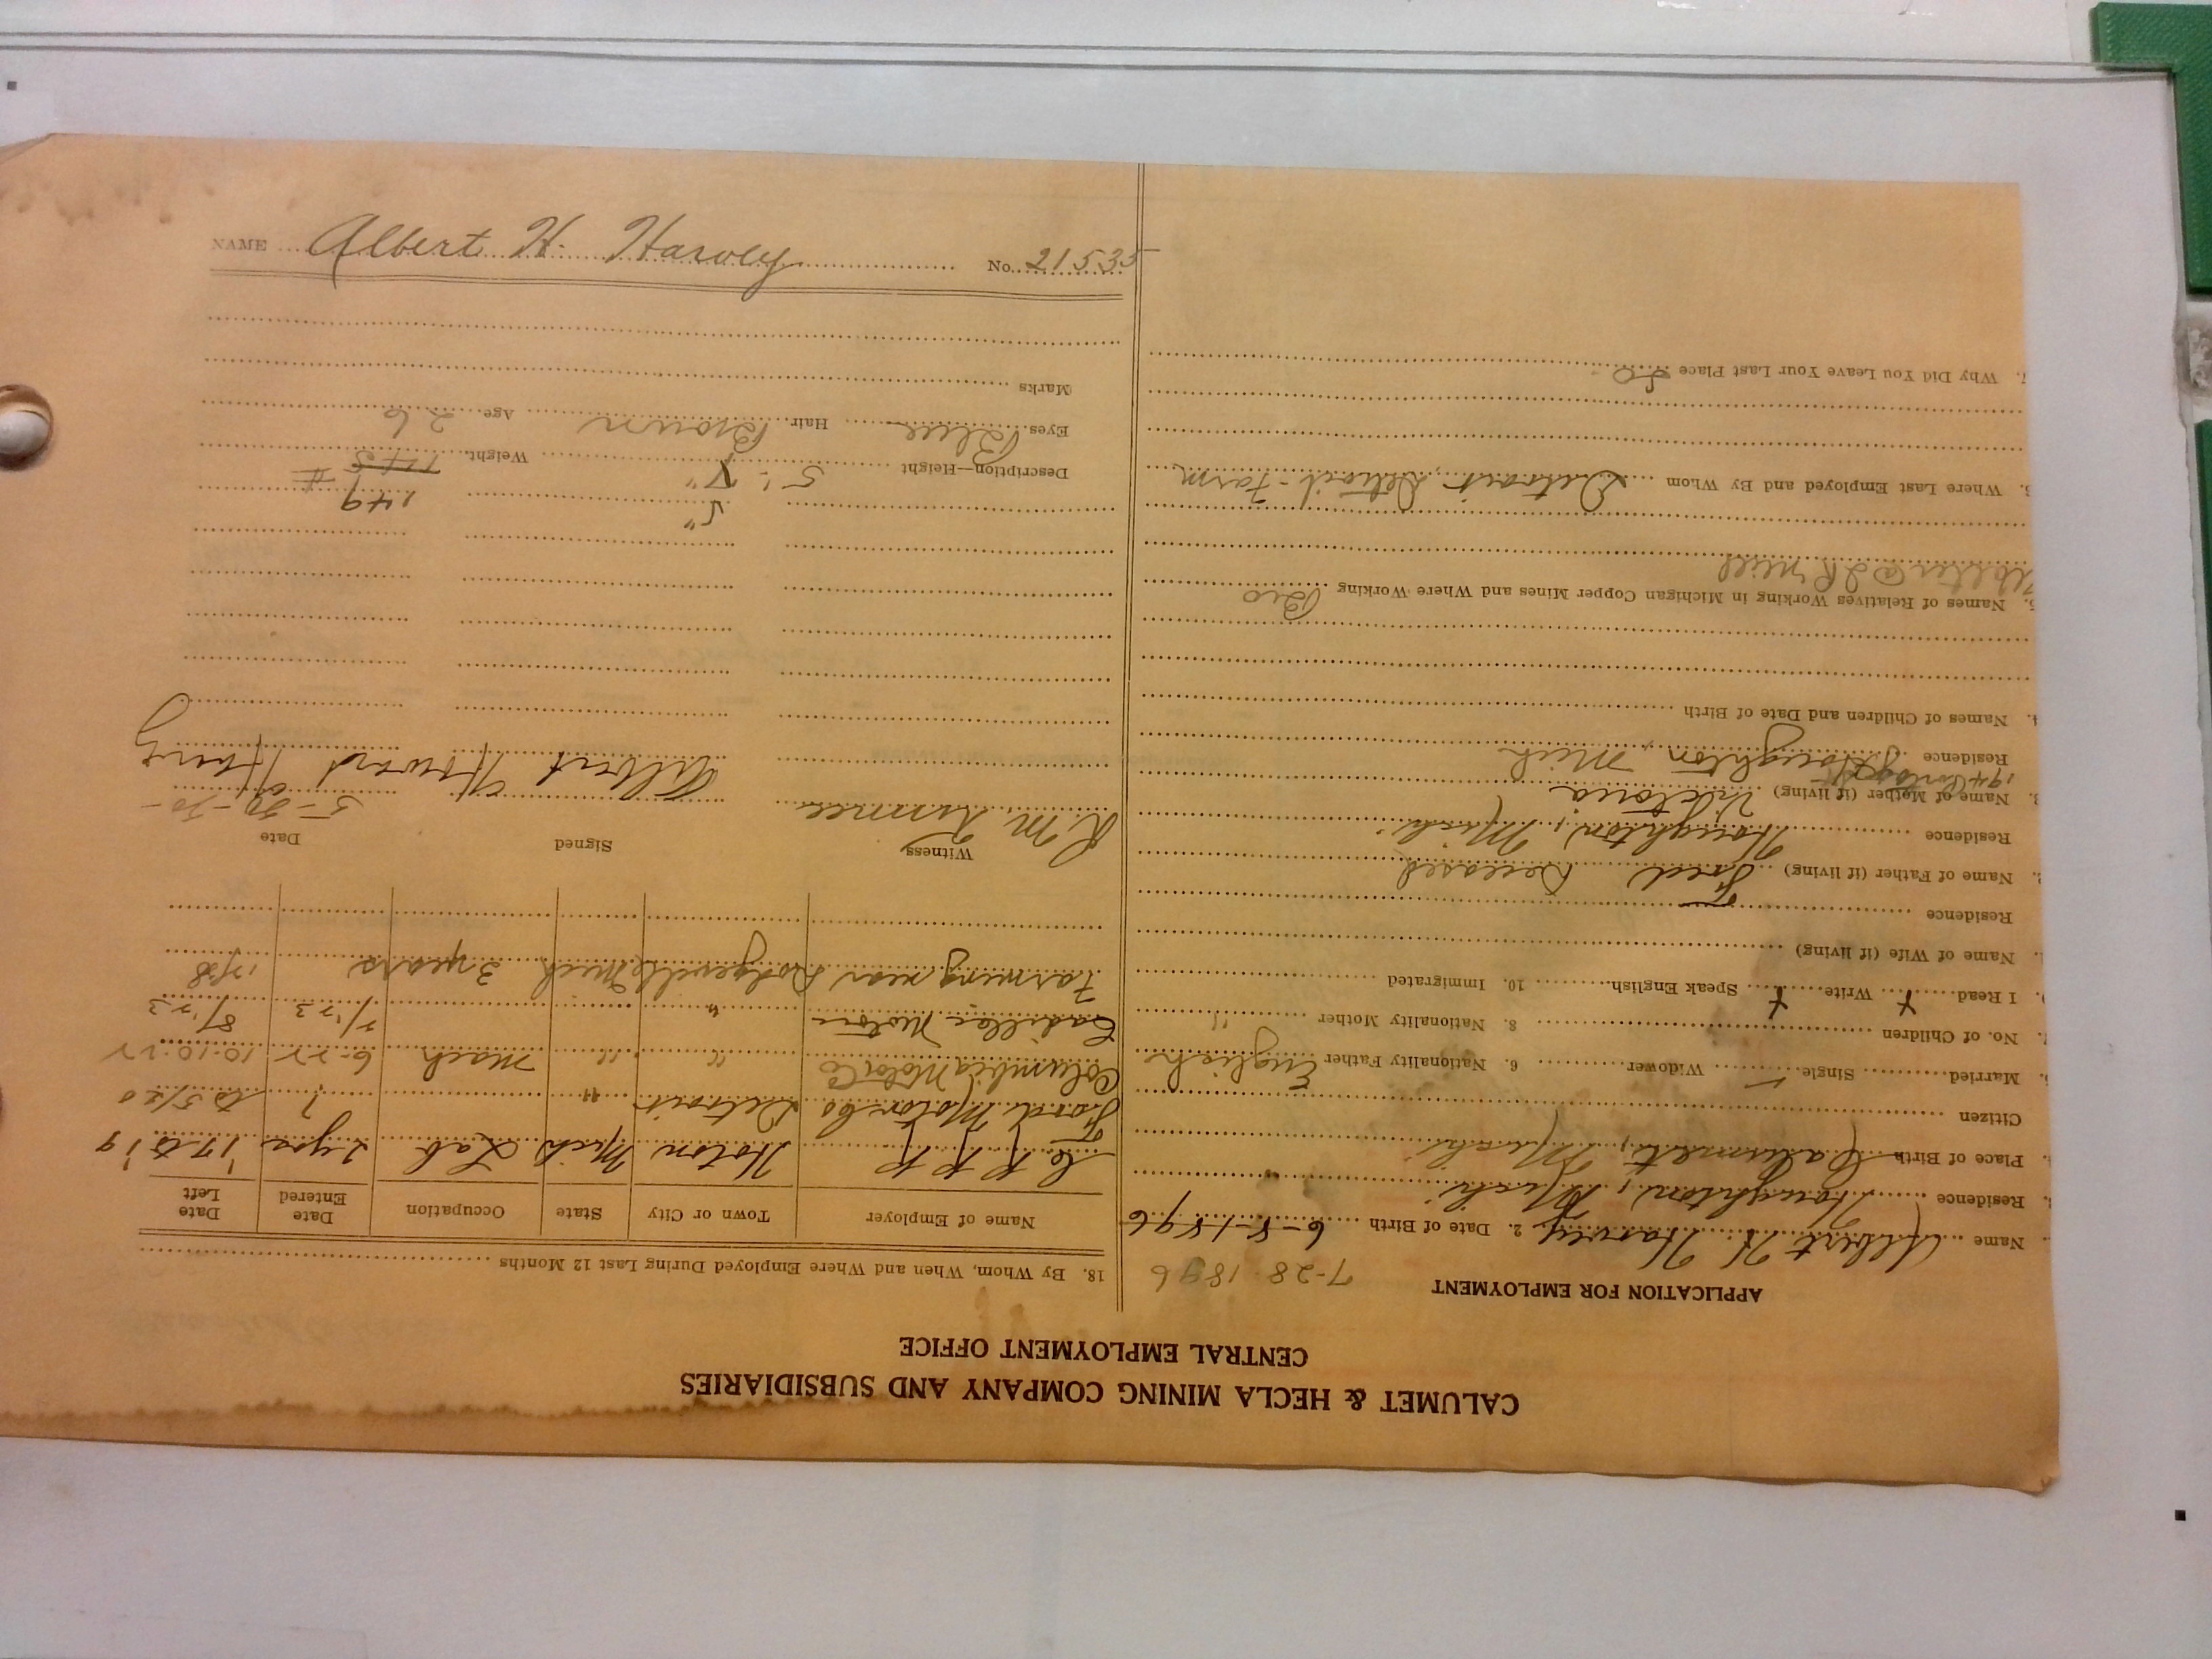 NAME Albert H. Harvey No. 21535
CALUMET & HECLA MINING COMPANY AND SUBSIDIARIES
CENTRAL EMPLOYMENT OFFICE
APPLICATION FOR EMPLOYMENT 7-28-1896
Name Albert H Harvey 2. Date of Birth 6-8-1896
Residence Houghton, Mich
Place of Birth Calumet, Mich
Citizen
Married Single Widower 6. Nationality Father English
No. of Children 8. Nationality Mother "
I Read Write Speak English 10. Immigrated
Name of Wife (if living)
Residence
2. Name of Father (if living) Fred Deceased
Residence Houghton, Mich
3. Name of Mother (if living) Victoria
Residence Houghton, Mich
4. Names of Children and Date of Birth
5. Names of Relatives Working in Michigan Copper Mines and Where Working Bro
6. Where Last Employed and By Whom Detroit, Detroit - Farm
7. Why Did You Leave Your Last Place
18. By Whom, When and Where Employed During Last 12 Months
Name of Employer Town or City State Occupation Date Entered Date Left
C R R R Hoton Mich Lab 2 yrs '17 to '19
Ford Motor Co Detroit " ? to 5/20
Columbia Motor Co " " Mach 6-22 10-10-22
Cadillac Motor " 2/23 8/23
Farming near Dodgeville Mich 3 years
Witness Signed Date
Albert Howard Harvey
149
5"
Description—Height 5' Weight 145 #
Eyes Blue Hair Brown Age 26
Marks